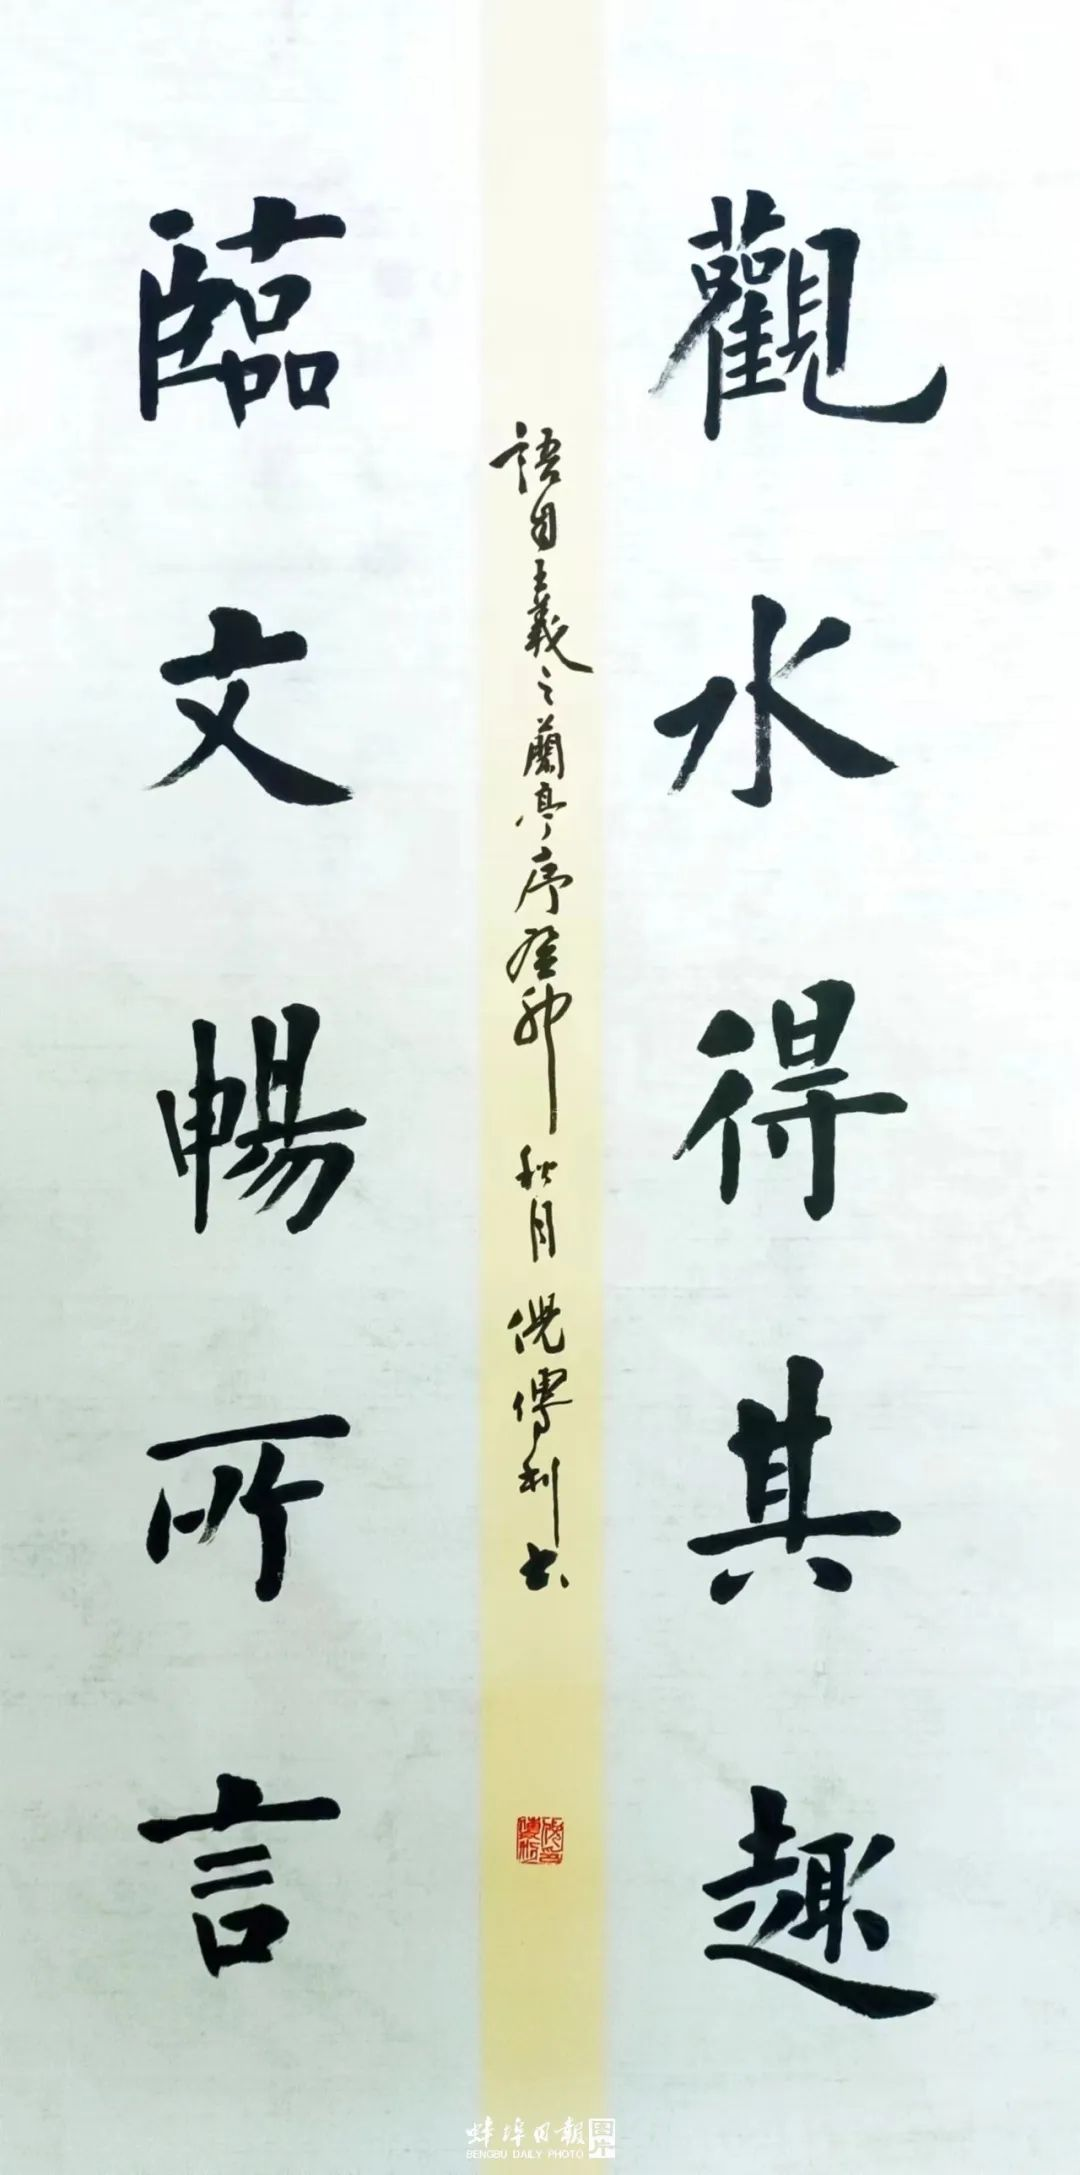 觀水得其趣
臨文暢所言
語自王羲之蘭亭序癸卯秋月倪傳利书
蚌埠日報圖片
BENGBU DAILY PHOTO